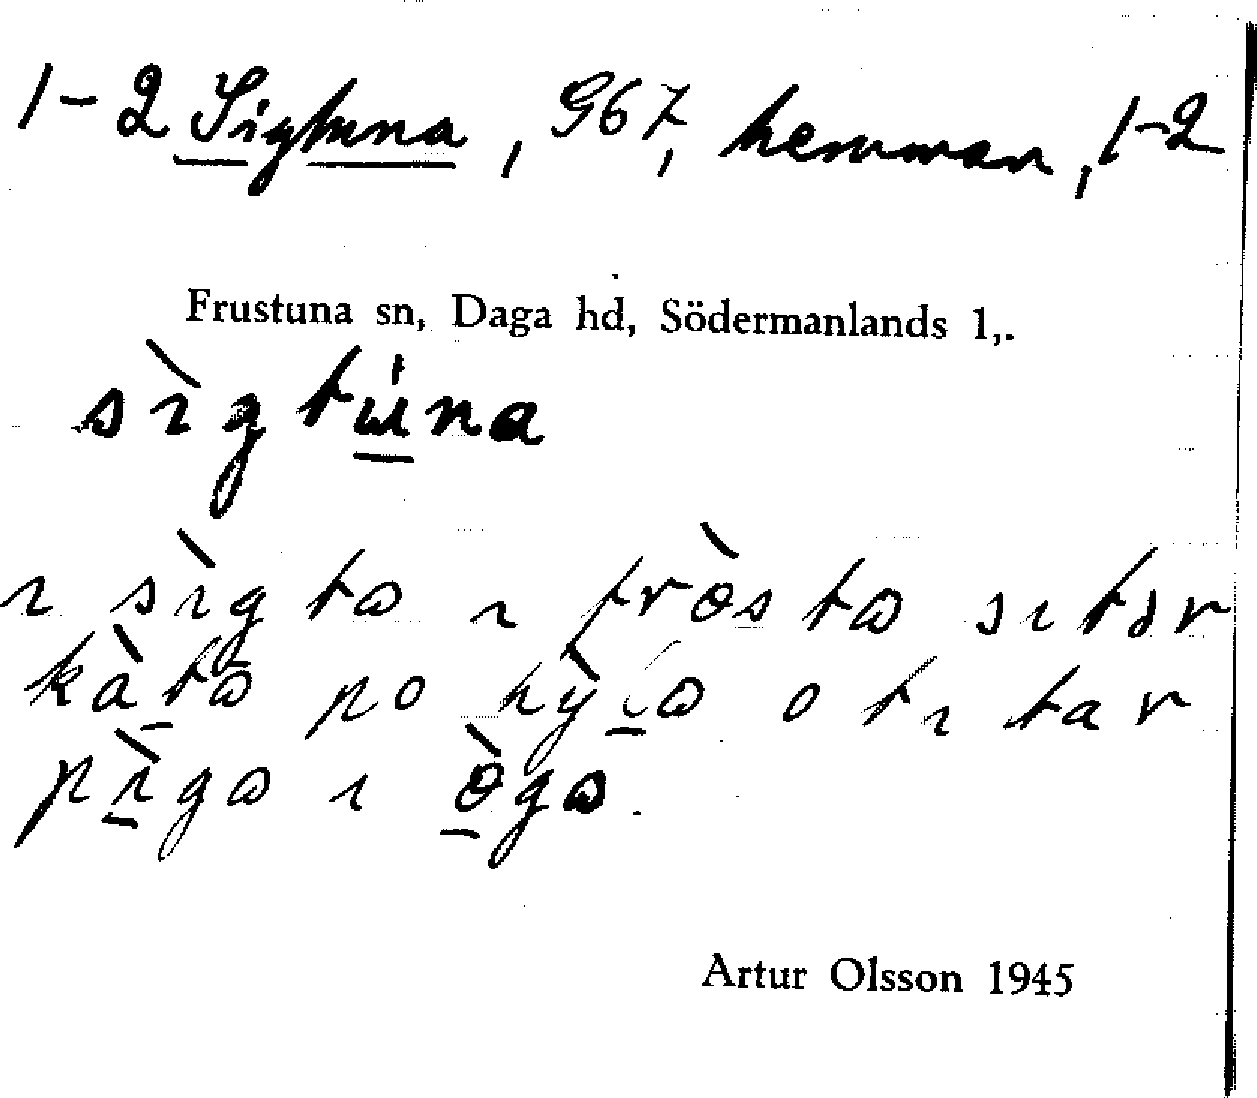 1-2 Sigtuna, 967, hemman, 1-2
Frustuna sn, Daga hd, Södermanlands l,.
sìgtú̲na
ı sìgta ı fròsta sıtər
kà̲ta po hỳi̲a o tı tar
pı̲̀ga ı ò̲ga.
Artur Olsson 1945